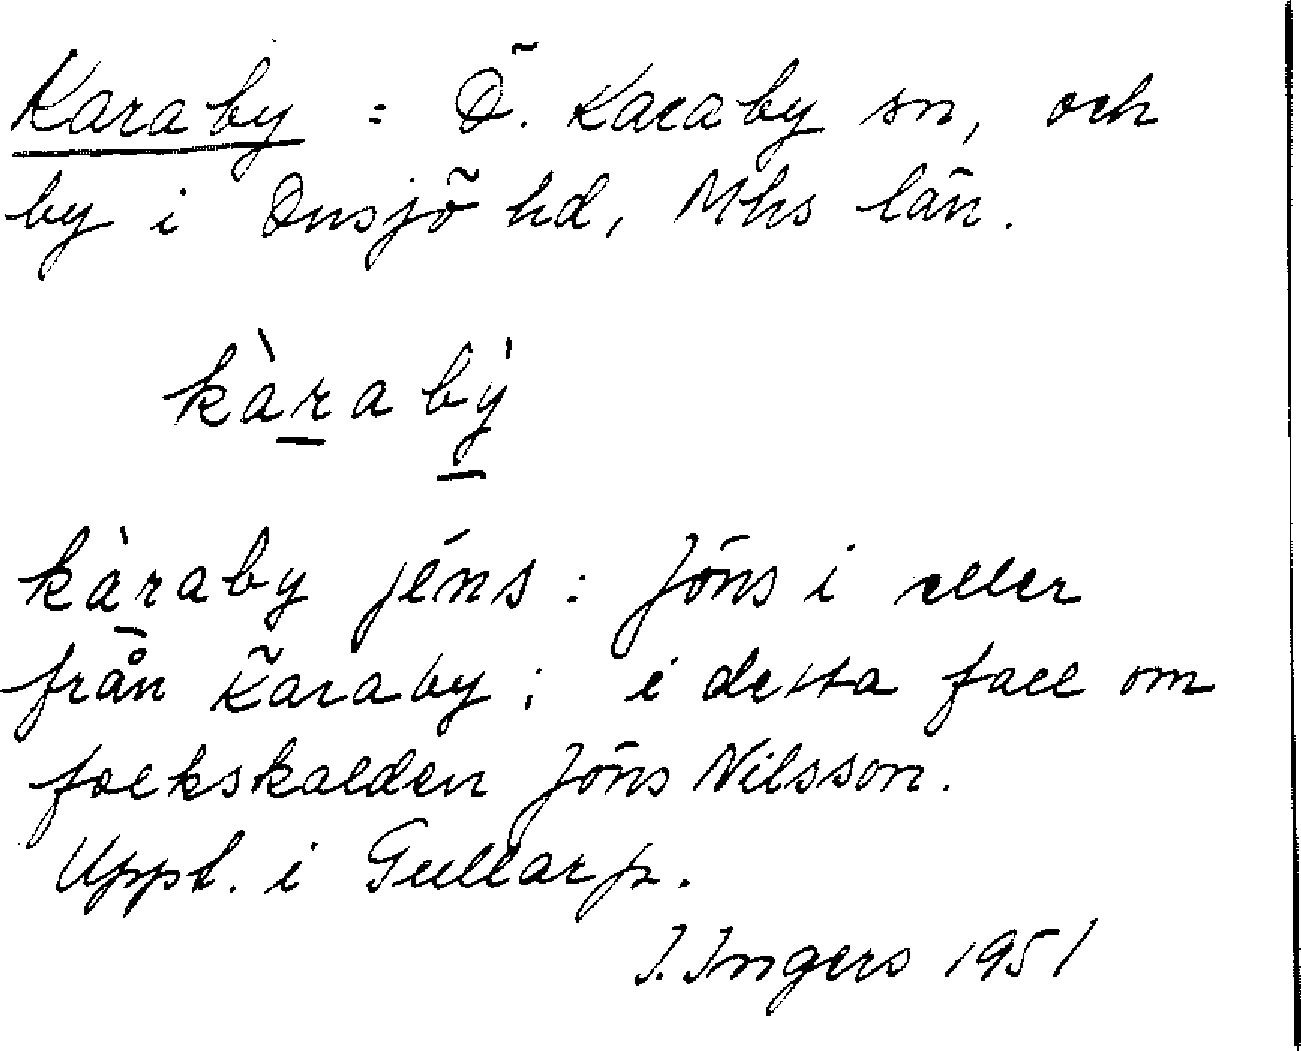 Karaby : Ö. Karaby sn, och
by i Onsjö hd, Mhs län.
kàrabý
kàraby jéns : Jöns i eller
från Karaby; i detta fall om
folkskalden Jöns Nilsson.
Uppt. i Gullarp.
I. Ingers 1951